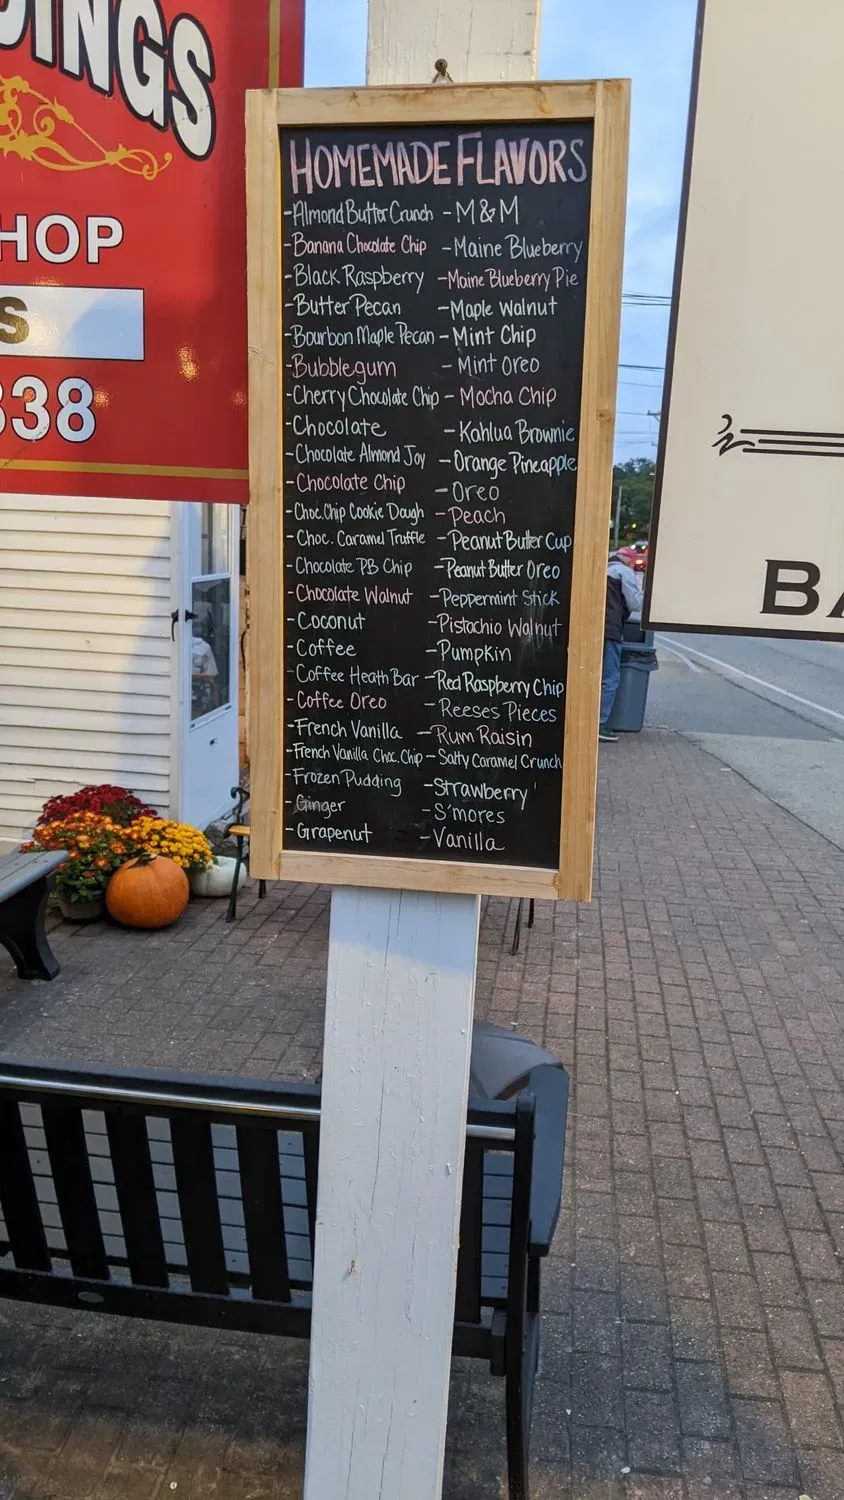 DINGS
HOP
S
338
HOMEMADE FLAVORS
-Almond Butter Crunch
-Banana Chocolate Chip
-Black Raspberry
-Butter Pecan
-Bourbon Maple Pecan
-Bubblegum
-Cherry Chocolate Chip
-Chocolate
-Chocolate Almond Joy
-Chocolate Chip
-Choc. Chip Cookie Dough
-Choc. Caramel Truffle
-Chocolate PB Chip
-Chocolate Walnut
-Coconut
-Coffee
-Coffee Heath Bar
-Coffee Oreo
-French Vanilla
-French Vanilla Choc. Chip
-Frozen Pudding
-Ginger
-Grapenut
-M&M
-Maine Blueberry
-Maine Blueberry Pie
-Maple Walnut
-Mint Chip
-Mint Oreo
-Mocha Chip
-Kahlua Brownie
-Orange Pineapple
-Oreo
-Peach
-Peanut Butter Cup
-Peanut Butter Oreo
-Peppermint Stick
-Pistachio Walnut
-Pumpkin
-Red Raspberry Chip
-Reeses Pieces
-Rum Raisin
-Salty Caramel Crunch
-Strawberry
-S'mores
-Vanilla
BA